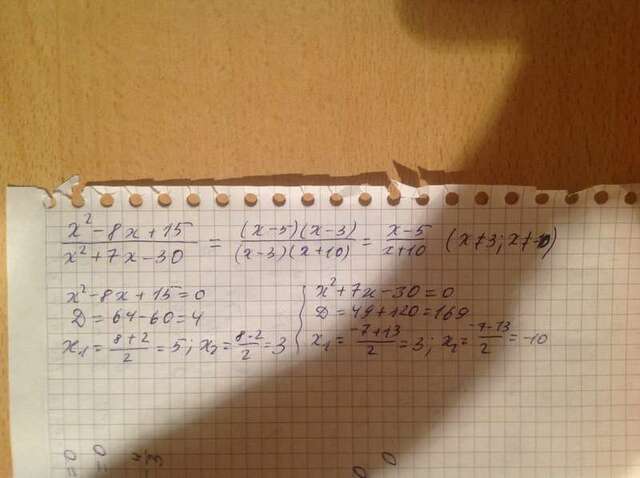 x²-8x+15/x²+7x-30 = (x-5)(x-3)/(x-3)(x+10) = x-5/x+10 (x≠3; x≠-10)
x²-8x+15=0
D=64-60=4
x₁=8+2/2=5; x₂=8-2/2=3
x²+7x-30=0
D=49+120=169
x₁=-7+13/2=3; x₂=-7-13/2=-10